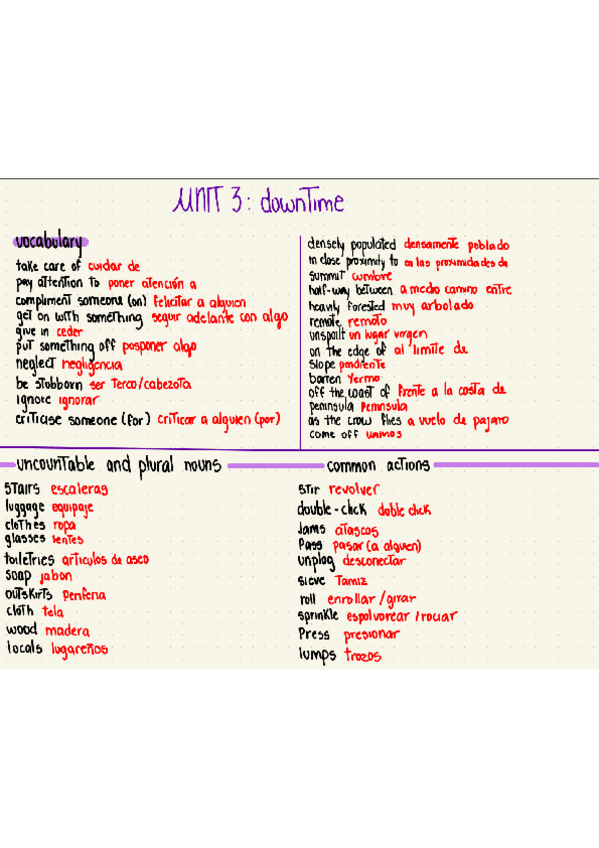 UNIT 3: downtime
vocabulary
take care of cuidar de
pay attention to poner atención a
compliment someone (on) felicitar a alguien
get on with something seguir adelante con algo
give in ceder
put something off posponer algo
neglect negligencia
be stobborn ser terco/cabezota
ignore ignorar
criticise someone (for) criticar a alguien (por)
densely populated densamente poblado
in close proximity to en las proximidades de
summit cumbre
half-way between a medio camino entre
heavily forested muy arbolado
remote remoto
unspoilt un lugar virgen
on the edge of al limite de
slope pendiente
barren yermo
off the coast of frente a la costa de
peninsula peninsula
as the crow flies a vuelo de pajaro
come off vamos
uncountable and plural nouns
stairs escaleras
luggage equipaje
clothes ropa
glasses lentes
toiletries articulos de aseo
soap jabon
outskirts periferia
cloth tela
wood madera
locals lugareños
common actions
stir revolver
double-click doble click
Jams atascos
Pass pasar (a alguien)
unplug desconectar
sieve Tamiz
roll enrollar / girar
sprinkle espolvorear / rociar
Press presionar
lumps trozos